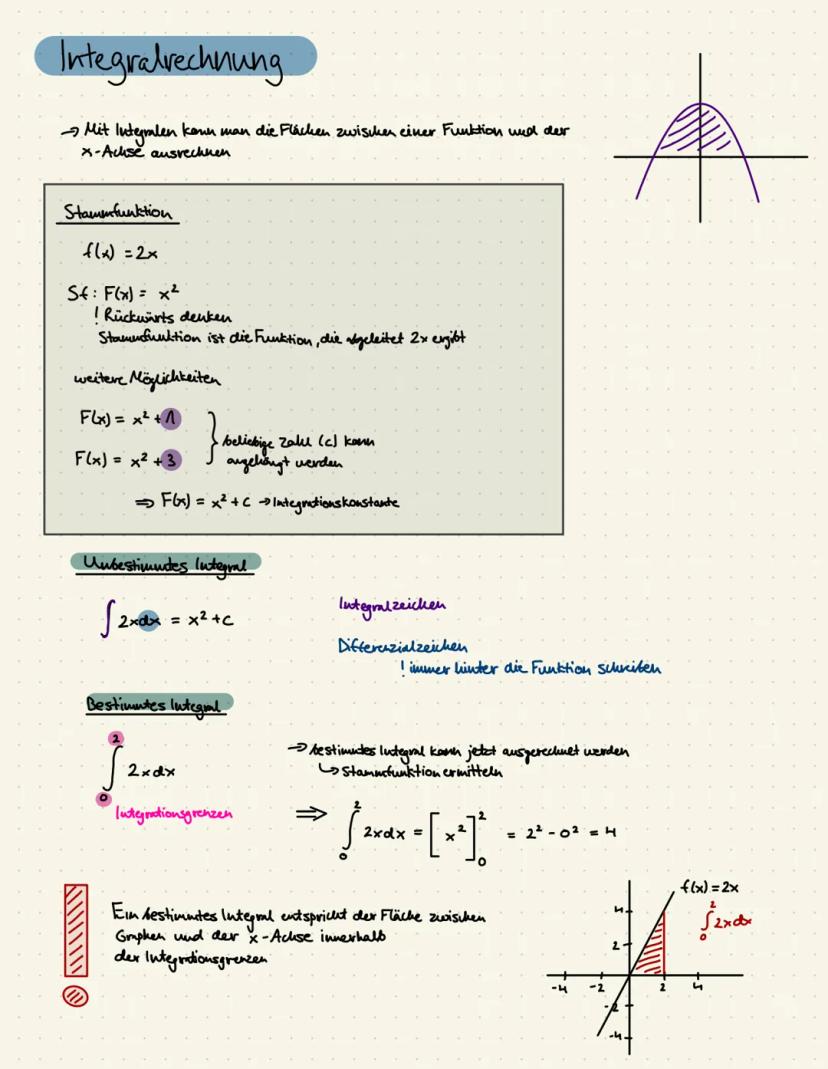 Integralrechnung
→ Mit Integralen kann man die Flächen zwischen einer Funktion und der
x-Achse ausrechnen
Stammfunktion
f(x) = 2x
Sf: F(x) = x²
! Rückwärts denken
Stammfunktion ist die Funktion, die abgeleitet 2x ergibt
weitere Möglichkeiten
F(x) = x² + 1
F(x) = x² + 3
} beliebige Zahl (c) kann
angehängt werden
⇒ F(x) = x² + c → Integrationskonstante
Unbestimmtes Integral
∫ 2x dx = x² + c
Integralzeichen
Differenzialzeichen
! immer hinter die Funktion schreiben
Bestimmtes Integral
2
∫ 2x dx
0
Integrationsgrenzen
→ bestimmtes Integral kann jetzt ausgerechnet werden
↳ Stammfunktion ermitteln
2 2
⇒ ∫ 2x dx = [x²] = 2² - 0² = 4
0 0
Ein bestimmtes Integral entspricht der Fläche zwischen
Graphen und der x-Achse innerhalb
der Integrationsgrenzen
f(x) = 2x
2
∫ 2x dx
0
4
2
-4 -2 2 4
-2
-4